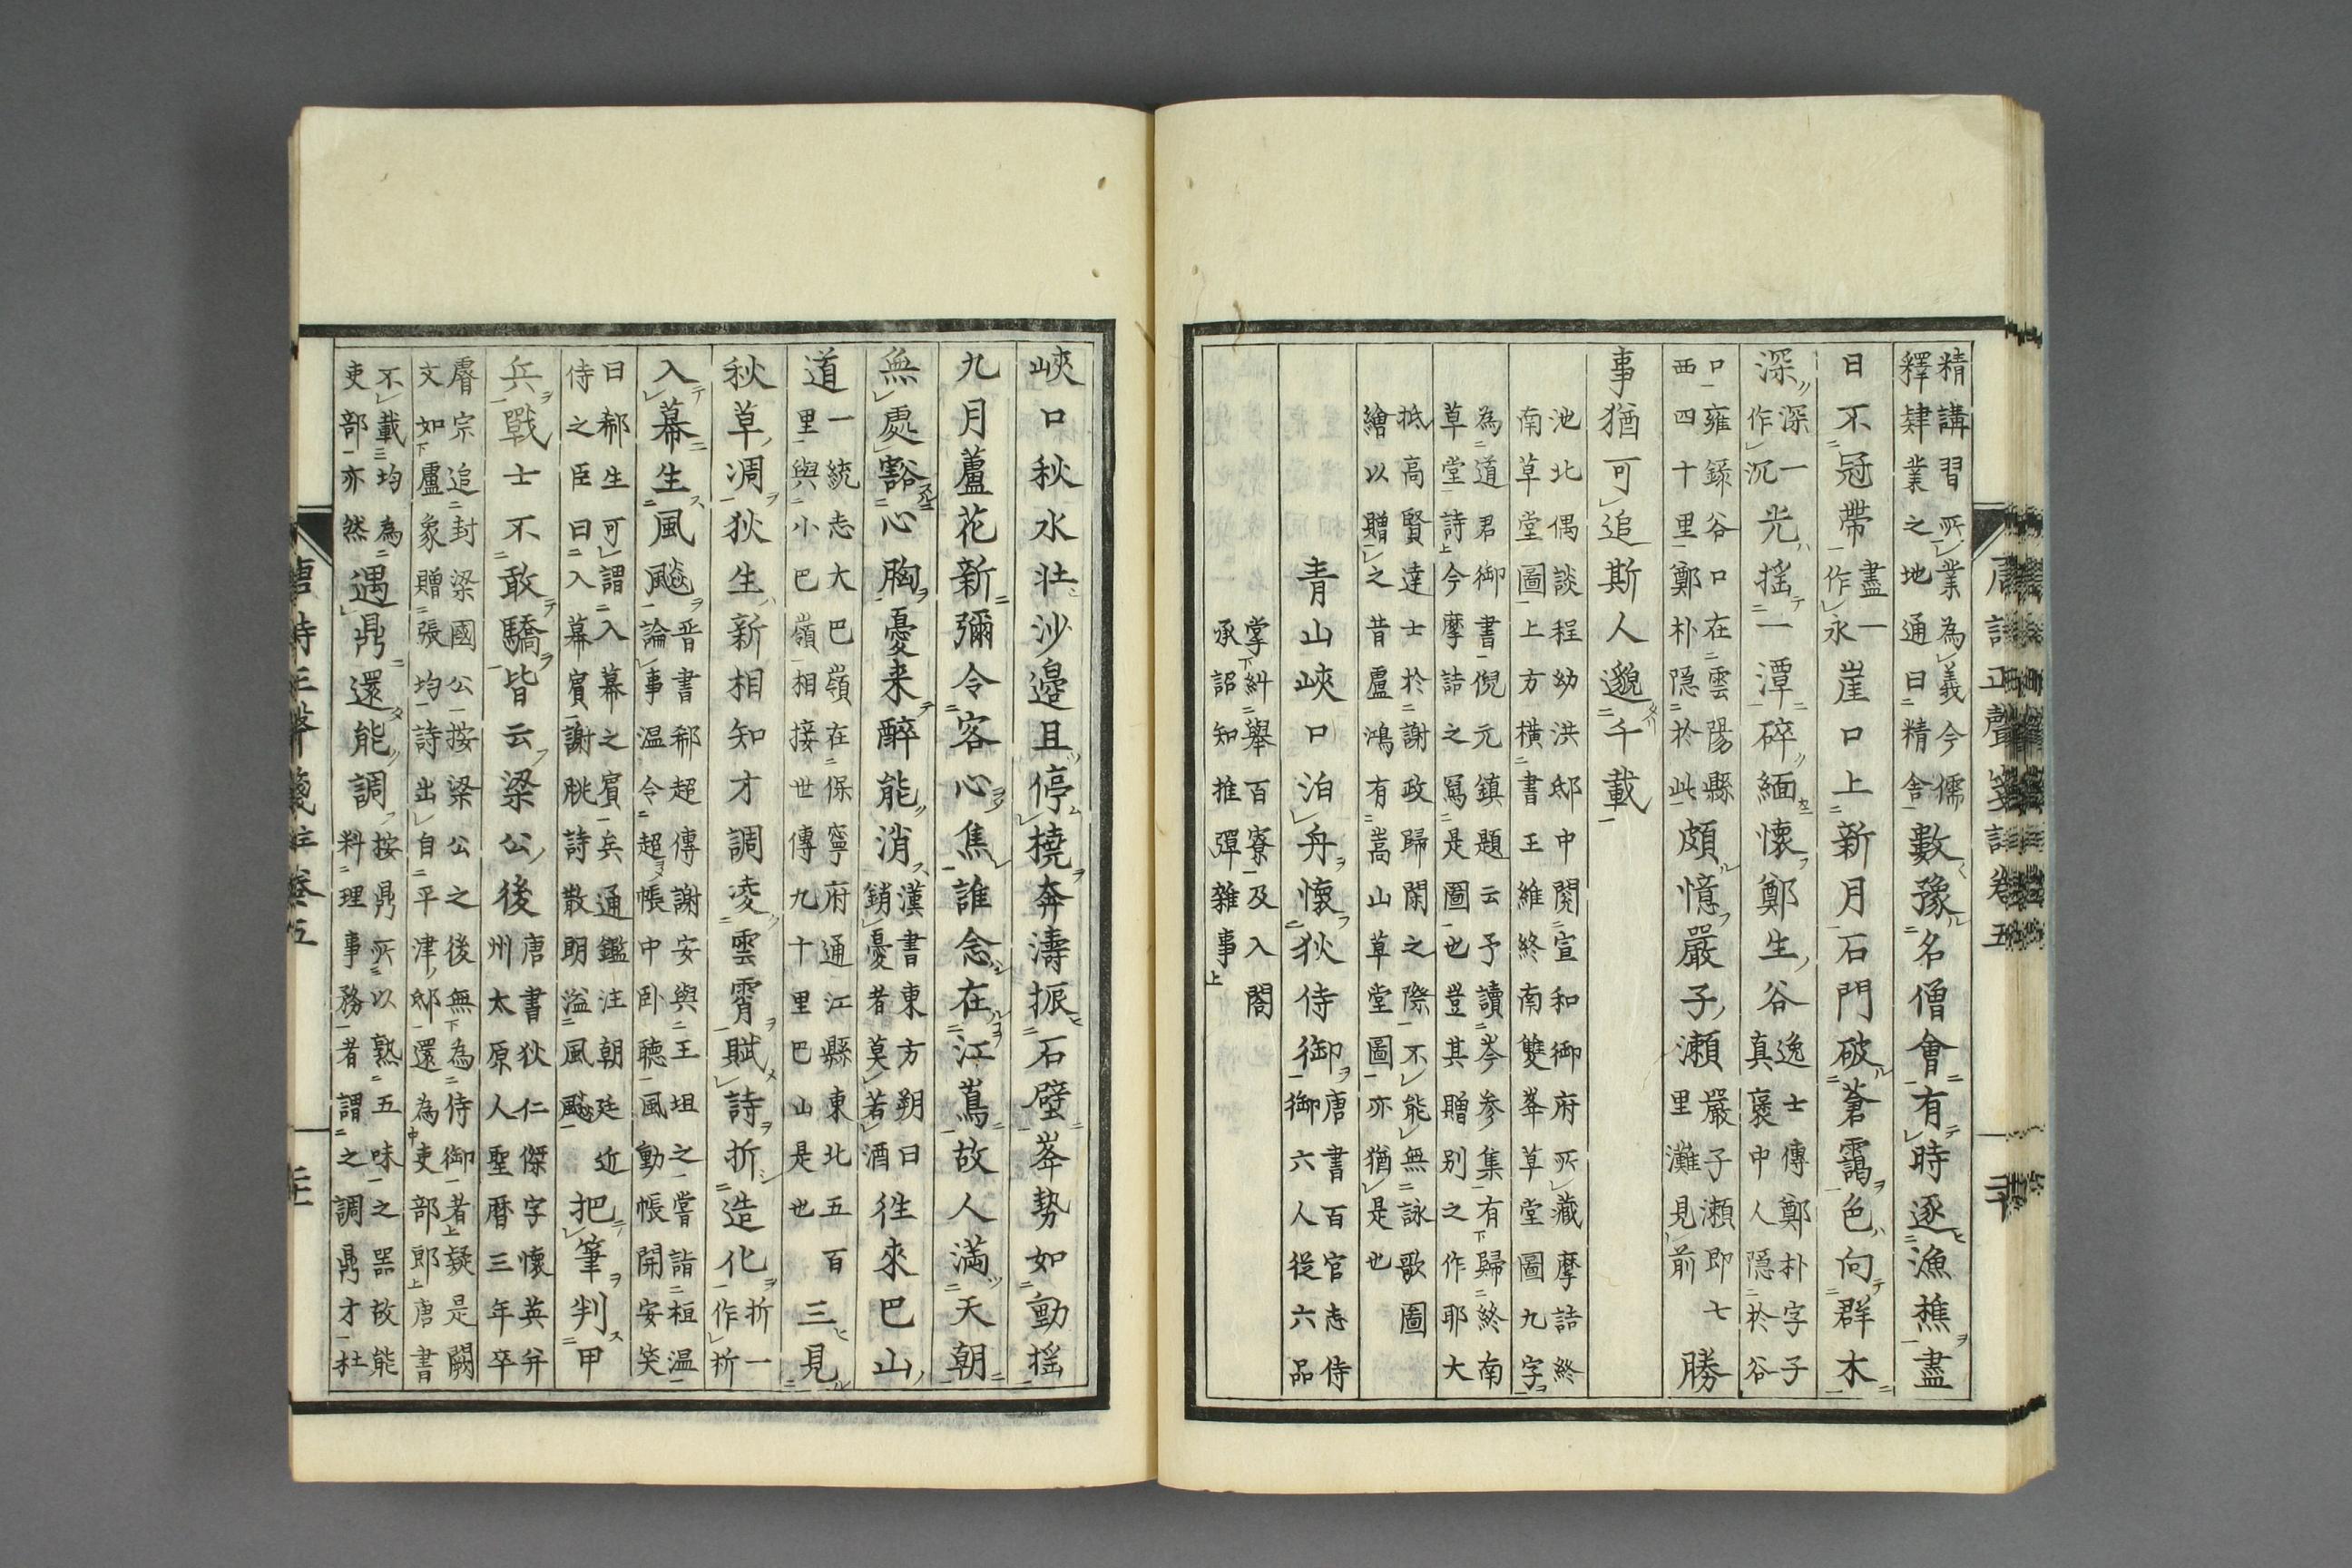 精講習所業為義今儒
釋肄業之地通曰精舍
數豫名僧會有時逐漁樵盡
日不冠帶
盡一
作永
崖口上新月石門破蒼靄色向群木
深
深一
作沉
光搖一潭碎緬懷鄭生谷
逸士傳鄭朴字子
真褒中人隱於谷
口雍錄谷口在雲陽縣
西四十里鄭朴隱於此
頗憶嚴子瀨
嚴子瀨即七
里灘見前
勝
事猶可追斯人邈千載
池北偶談程幼洪邸中閱宣和御府所藏摩詰終
南草堂圖上方橫書王維終南雙峯草堂圖九字
為道君御書倪元鎮題云予讀岑参集有歸終南
草堂詩今摩詰之寫是圖也豈其贈別之作耶大
抵高賢達士於謝政歸閑之際不能無詠歌圖
繪以贈之昔盧鴻有嵩山草堂圖亦猶是也
青山峽口泊舟懷狄侍御
唐書百官志侍
御六人從六品
掌糾舉百寮及入閣
承詔知推彈雜事
唐詩正聲箋註卷五
峽口秋水壮沙邉且停橈奔濤振石壁峯勢如動搖
九月蘆花新彌令客心焦誰念在江嶌故人満天朝
無處豁心胸憂来醉能消
漢書東方朔曰
銷憂者莫若酒
徃來巴山
道
一統志大巴嶺在保寧府通江縣東北五百
里與小巴嶺相接世傳九十里巴山是也
三見
秋草凋狄生新相知才調凌雲霄賦詩折造化
折一
作析
入幕生風飈
晋書郗超傳謝安與王坦之嘗詣桓温
論事温令超帳中卧聴風動帳開安笑
曰郗生可謂入幕之賓矣通鑑注朝廷近
侍之臣曰入幕賓謝朓詩散朗溢風飈
把筆判甲
兵戰士不敢驕皆云梁公後
唐書狄仁傑字懷英并
州太原人聖暦三年卒
睿宗追封梁國公按梁公之後無為侍御者疑是闕
文如盧象贈張均詩出自平津邸還為吏部郎唐書
不載均為
吏部亦然
遇鼎還能調
按鼎所以熟五味之器故能
料理事務者謂之調鼎才杜